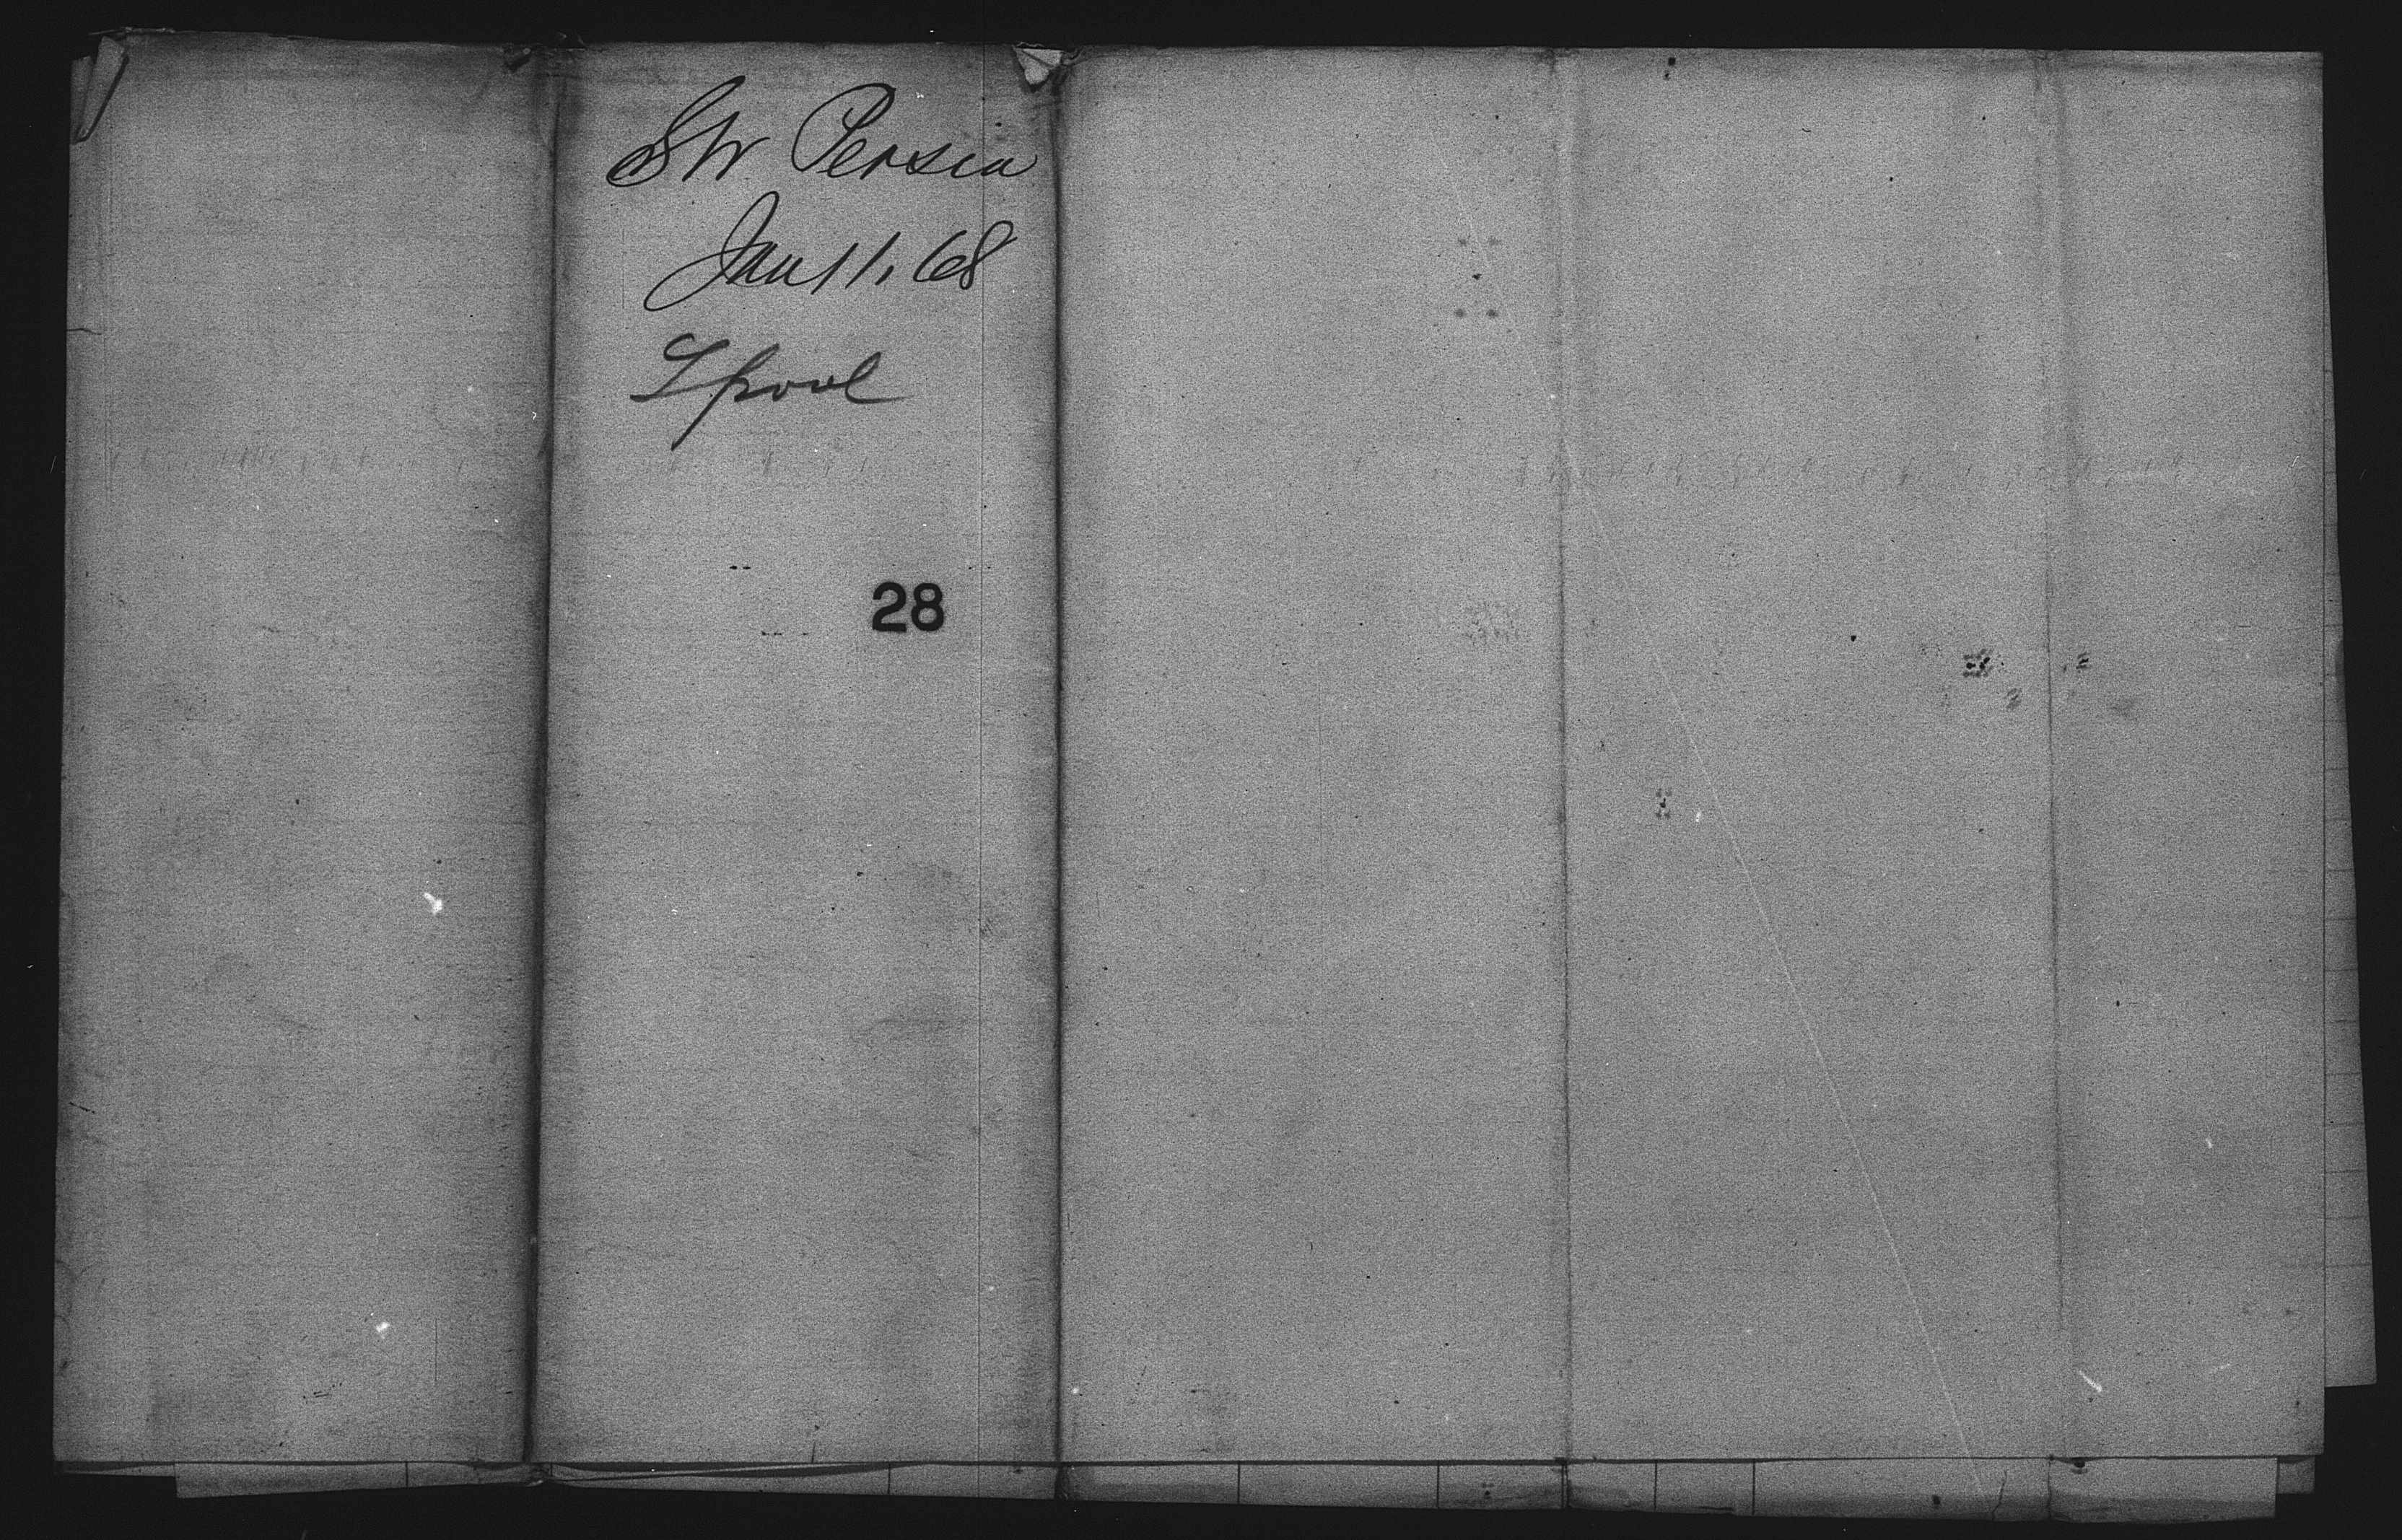 Str Persia
Jan 11. 68
Lpool
28